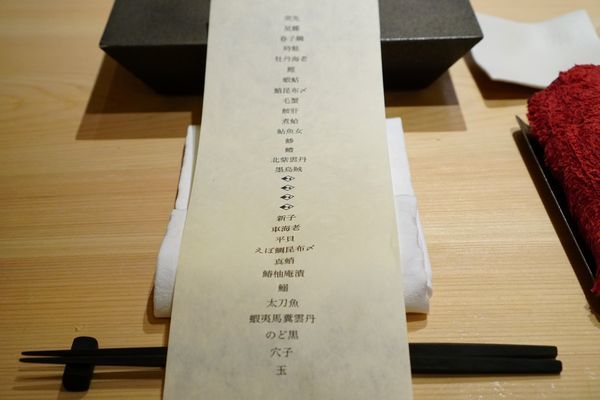 星鰈
春子鯛
時鮭
牡丹海老
鰹
蝦蛄
昆布〆
毛蟹
煮蛤
鮎魚女
北紫雲丹
墨烏賊
新子
車海老
平貝
えぼ鯛昆布〆
真蛸
鰆柚庵漬
鰯
太刀魚
蝦夷馬糞雲丹
のど黒
穴子
玉